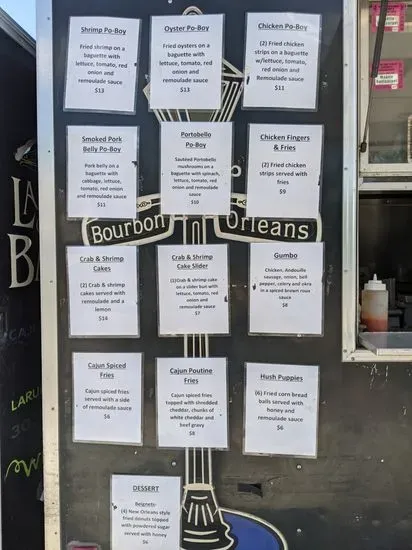 Shrimp Po-Boy
Fried shrimp on a
baguette with
lettuce, tomato, red
onion and
remoulade sauce
$13
Oyster Po-Boy
Fried oysters on a
baguette with
lettuce, tomato, red
onion and
remoulade sauce
$13
Chicken Po-Boy
(2) Fried chicken
strips on a baguette
w/lettuce, tomato,
red onion and
Remoulade sauce
$11
Smoked Pork
Belly Po-Boy
Pork belly on a
baguette with
cabbage, lettuce,
tomato, red onion
and remoulade
sauce
$11
Portobello
Po-Boy
Sautéed Portobello
mushrooms on a
baguette with spinach,
lettuce, tomato, red
onion and remoulade
sauce
$10
Chicken Fingers
& Fries
(2) Fried chicken
strips served with
fries
$9
Bourbon Orleans
Crab & Shrimp
Cakes
(2) Crab & shrimp
cakes served with
remoulade and a
lemon
$14
Crab & Shrimp
Cake Slider
(1)Crab & shrimp cake
on a slider bun with
lettuce, tomato, red
onion and remoulade
sauce
$7
Gumbo
Chicken, Andouille
sausage, onion, bell
pepper, celery and okra
in a spiced brown roux
sauce
$8
Cajun Spiced
Fries
Cajun spiced fries
served with a side
of remoulade sauce
$6
Cajun Poutine
Fries
Cajun spiced fries
topped with shredded
cheddar, chunks of
white cheddar and
beef gravy
$8
Hush Puppies
(6) Fried corn bread
balls served with
honey and
remoulade sauce
$6
DESSERT
Beignets
(4) New Orleans style
fried donuts topped
with powdered sugar
served with honey
$6